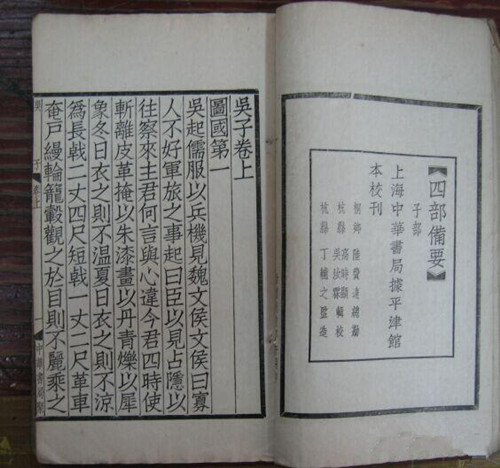 【四部備要】
子部
上海中華書局據平津館
本校刊
桐鄉 陸費逵總勘
杭縣 高時顯輯校
杭縣 吳汝霖輯校
杭縣 丁輔之監造
吳子卷上
圖國第一
吳起儒服以兵機見魏文侯文侯曰寡
人不好軍旅之事起曰臣以見占隱以
往察來主君何言與心違今君四時使
斬離皮革掩以朱漆畫以丹青爍以犀
象冬日衣之則不温夏日衣之則不涼
爲長戟二丈四尺短戟一丈二尺革車
奄戸縵輪籠轂觀之於目則不麗乘之